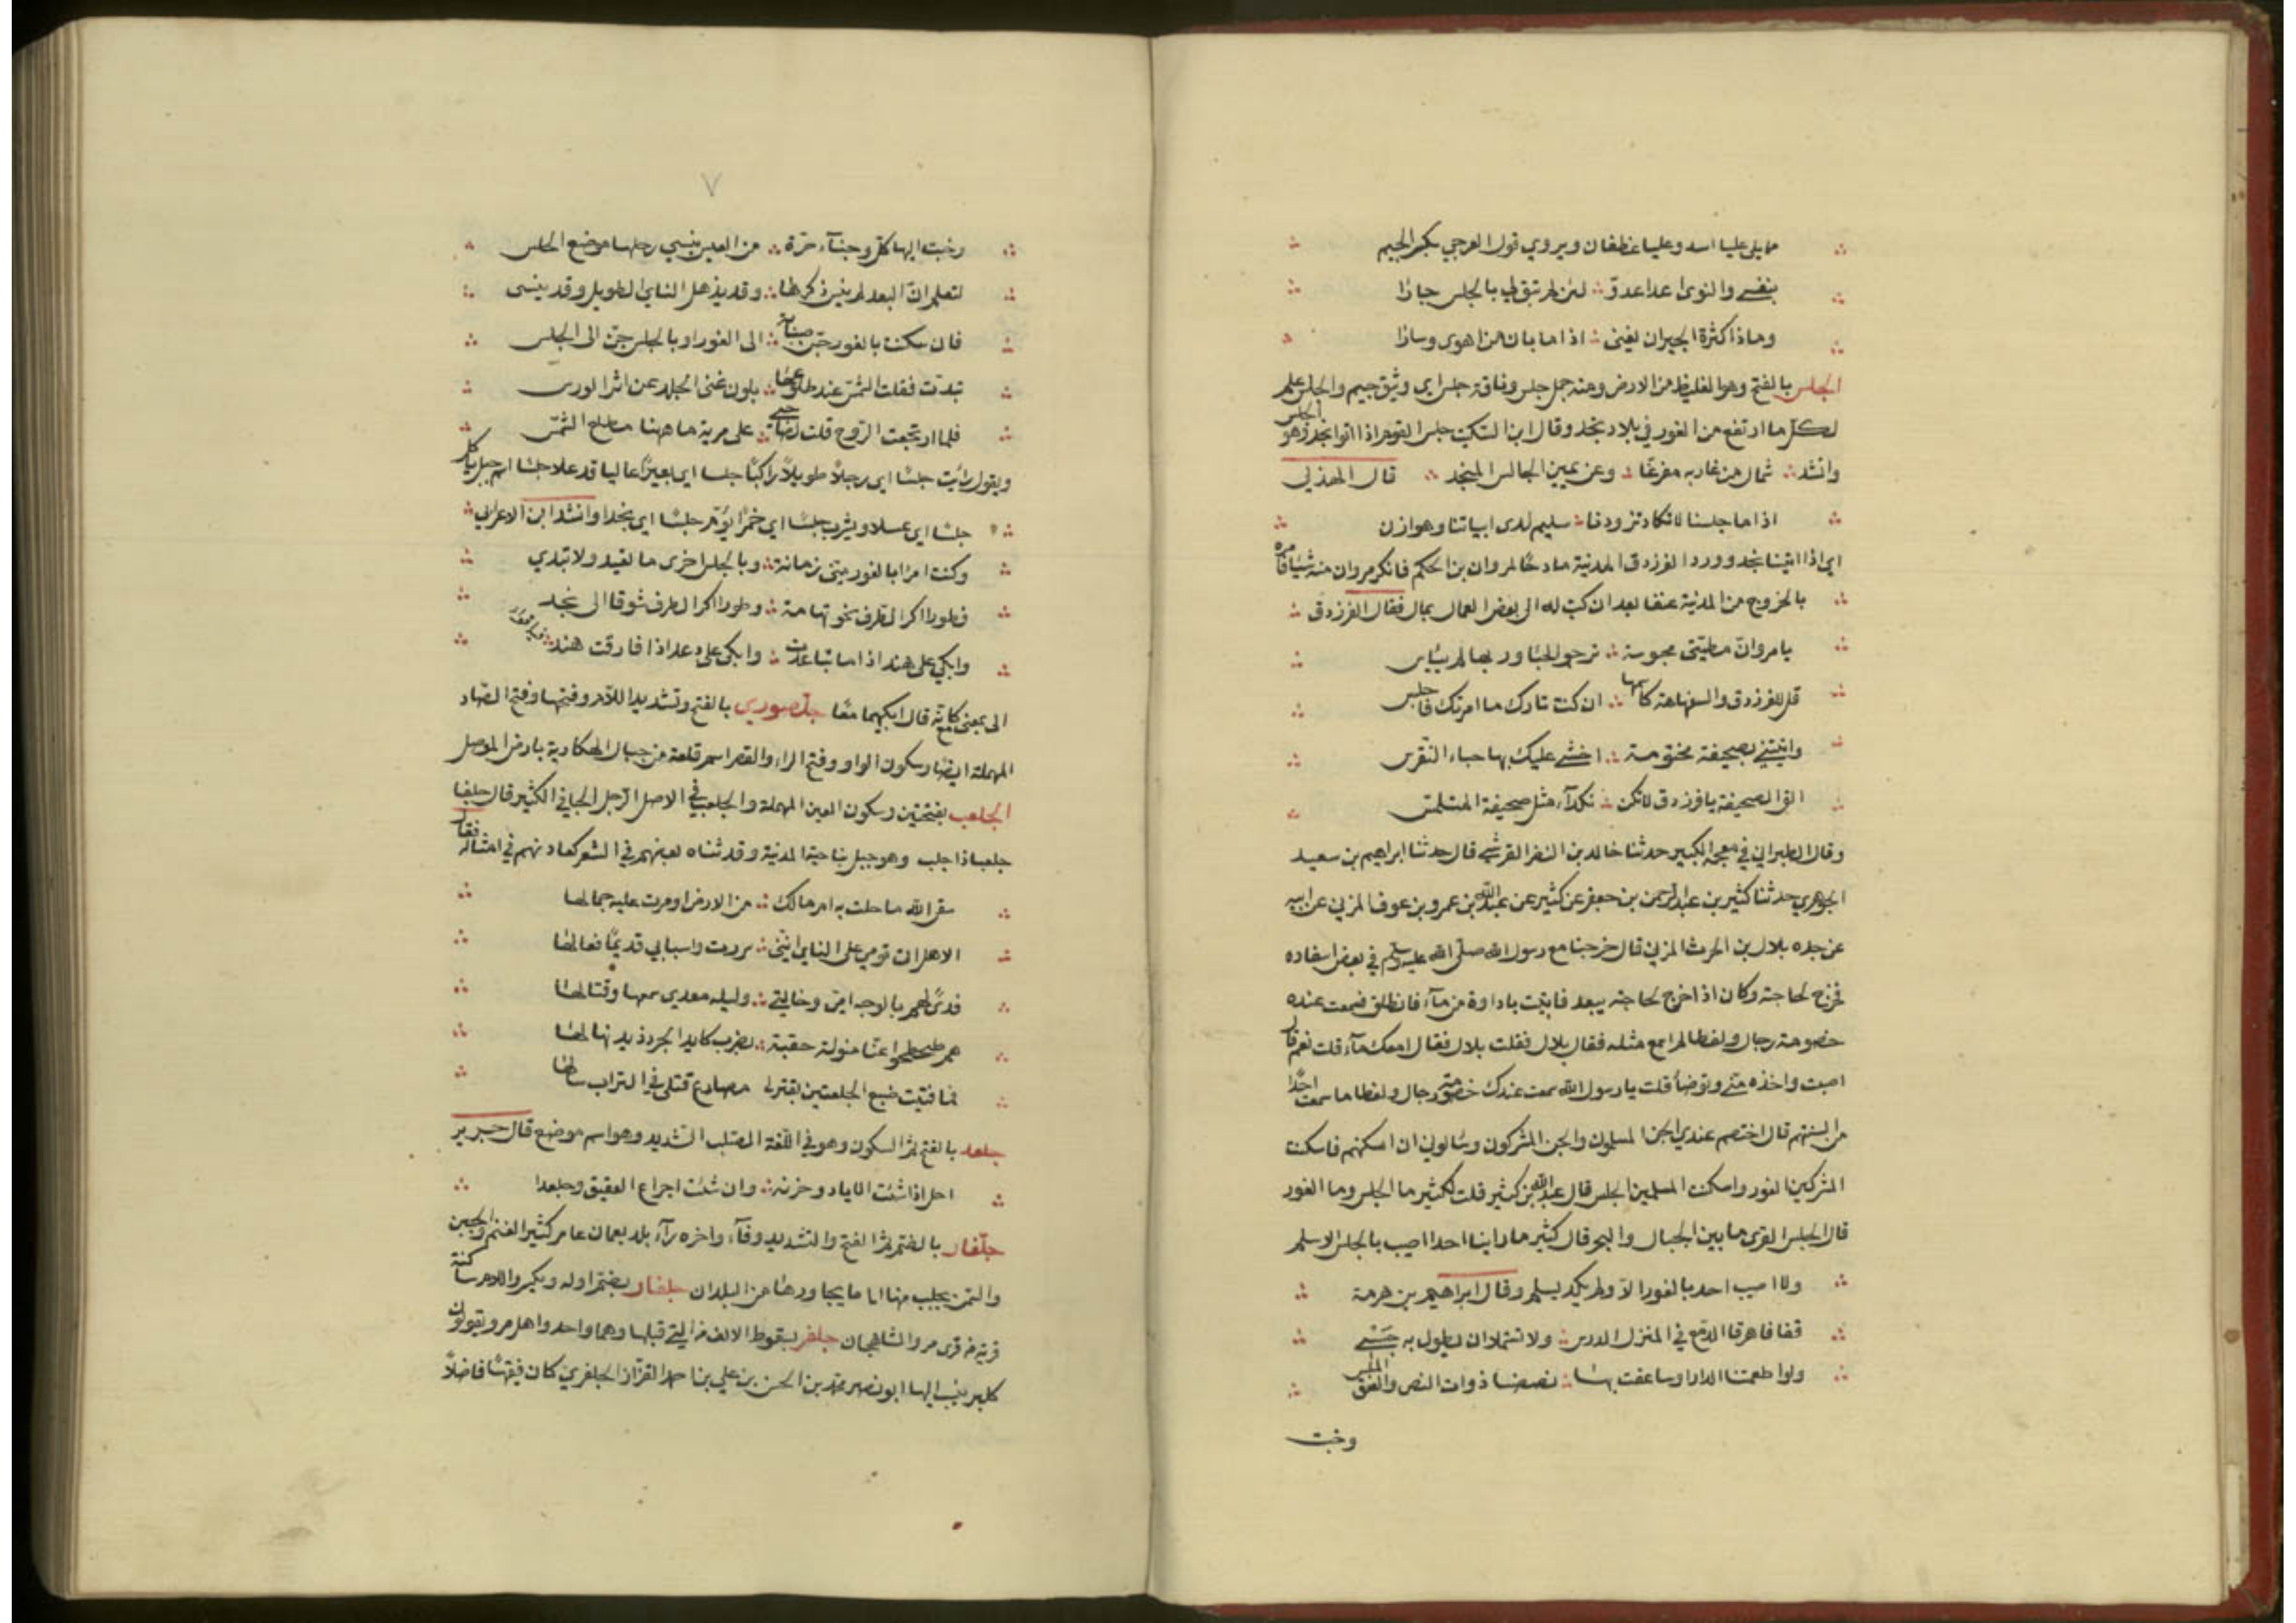 مما يلي علياء اسد وعلياء غطفان ويروي قول العرجي بكسر الجيم
بنفسي والنوى اعدا عدوّ لئن لم تبق لي بالجلس جارا
وماذا كثرة الجيران يغني اذا ما بان من اهوى وسارا
الجلس بالفتح وهو الغليظ من الارض ومنه جمل جلس وناقة جلس اي وثيق جسيم والجلس علم
لكل ما ارتفع من الغور في بلاد نجد وقال ابن السكيت جلس القوم اذا اتوا نجدا وهو الجلس
وانشد شمال من غار به مفرعًا وعن يمين الجالس المنجد قال الهذلي
اذا ما جلسنا لا تكاد تزورنا سليم لدى ابياتنا وهوازن
اي اذا اتينا نجد وورد الفرزدق المدينة مادحًا لمروان بن الحكم فانكر مروان منه شيئا فامره
بالخروج من المدينة عنفا بعد ان كتب له الى بعض العمال بمال فقال الفرزدق
يا مروان مطيّتي محبوسة ترجو الحباء وربها لم ييأس
قل للفرزدق والسفاهة كاسمها ان كنت تارك ما امرتك فاجلس
واتيتني بصحيفة مختومة اخشى عليك بها حباء النقرس
الق الصحيفة يا فرزدق لا تكن نكدآء مثل صحيفة المتلمس
وقال الطبراني في معجمه الكبير حدثنا خالد بن النضر القرشي قال حدثنا ابراهيم بن سعيد
الجوهري حدثنا كثير بن عبد الرحمن بن جعفر عن كثير عن عبد الله بن عمرو بن عوف المزني عن ابيه
عن جده بلال بن الحرث المزني قال خرجنا مع رسول الله صلى الله عليه وسلم في بعض اسفاره
فخرج لحاجته وكان اذا خرج لحاجته يبعد فاتيت باداوة من مآء فانطلق فسمعت عنده
خصومة رجال ولغطا لم اسمع مثله فقال بلال فقلت بلال فقال امعك مآء قلت نعم قال
اصبت واخذه مني وتوضأ قلت يا رسول الله سمعت عندك خصومة رجال ولغطا ما سمعت احدًا
من السنتهم قال اختصم عندي الجن المسلمون والجن المشركون وسالوني ان اسكنهم فاسكنت
المشركين الغور واسكنت المسلمين الجلس قال عبد الله بن كثير قلت لكثير ما الجلس وما الغور
قال الجلس القرى ما بين الجبال والبحر قال كثير ما راينا احدا اصيب بالجلس الا سلم
ولا اصيب احد بالغور الا ولم يكد يسلم وقال ابراهيم بن هرمة
قفا فاهرقا الدمع في المنزل الدرس ولا تستملا ان يطول به حبسي
ولو اطمعتنا الدار او ساعفت بها نصصنا ذوات النص والعنق الملس
وخبت
٧
وخبت اليها كل وجنآء حرة من العيس ينسي رحلها موضع الحلس
لتعلم ان البعد لم ينس ذكرها وقد يذهل الناي الطويل وقد ينسى
فان سكنت بالغور حنّ صبابة الى الغور او بالجلس حن الى الجلس
تبدّت فقلت الشمس عند طلوعها بلون غني الجلد عن اثر الورس
فلما ارتجعت الروح قلت لصاحبي على مرية ما ههنا مطلع الشمس
ويقول رايت جلسًا اي رجلاً طويلاً راكبًا جلسا اي بعيرًا عاليا قد علا جلسًا اسم جبل ياكل
جلسًا اي عسلا ويشرب جلسًا اي خمرًا يؤم جلسًا اي نجدا وانشد ابن الاعرابي
وكنت امرا بالغور مني زمانة وبالجلس اخرى ما تعيد ولا تبدي
فطورا اكر الطرف نحو تهامة وطورا اكر الطرف شوقا الى نجد
وابكي على هند اذا ما تباعدت وابكي على دعد اذا فارقت هند
الى بمعنى مع كانه قال ابكيهما معًا جلّصورى بالفتح وتشديد اللام وفتحها وفتح الصاد
المهملة ايضا وسكون الواو وفتح الراء والقصر اسم قلعة من جبال الهكارية بارض الموصل
الجلعب بفتحتين وسكون العين المهملة والجلعب في الاصل الرجل الجافي الكثير قال جلفا
جلعبا ذا جلب وهو جبل بناحية المدينة وقد ثناه بعضهم في الشعر كعادتهم في امثاله فقال
سقى الله ما حلت به ام مالك من الارض او مرت عليه جمالها
الا هل ان قومي على الناي انني بررت واسبابي قديمًا فعالها
فدىً لهم بالوجه امي وخالتي وليله معدي سمها وقتالها
هم طحطحوا عنا منولة حقبة بضرب كايد الجرد ذيد نهالها
فما فتيت ضبع الجلعبين تعترى مصارع قتلى في التراب سبالها
جلعد بالفتح ثم السكون وهو في اللغة الصلب الشديد وهو اسم موضع قال جرير
احل اذا شئت الاياد وحزنه وان شئت اجراع العقيق وجلعدا
جلّفار بالضم ثم الفتح والتشديد وفآء واخره رآء بلد بعمان عامر كثير الغنم والجبن
والسمن يجلب منها الى ما يجاورها من البلدان جلفار بضم اوله ويكسر واللام ساكنة
قرية من قرى مرو الشاهجان جلفر بسقوط الالف من التي قبلها وهما واحد واهل مرو يقولون
كلبر ينسب اليها ابو نصر محمد بن الحسن بن علي بن احمد القزاز الجلفري كان فقيهًا فاضلاً